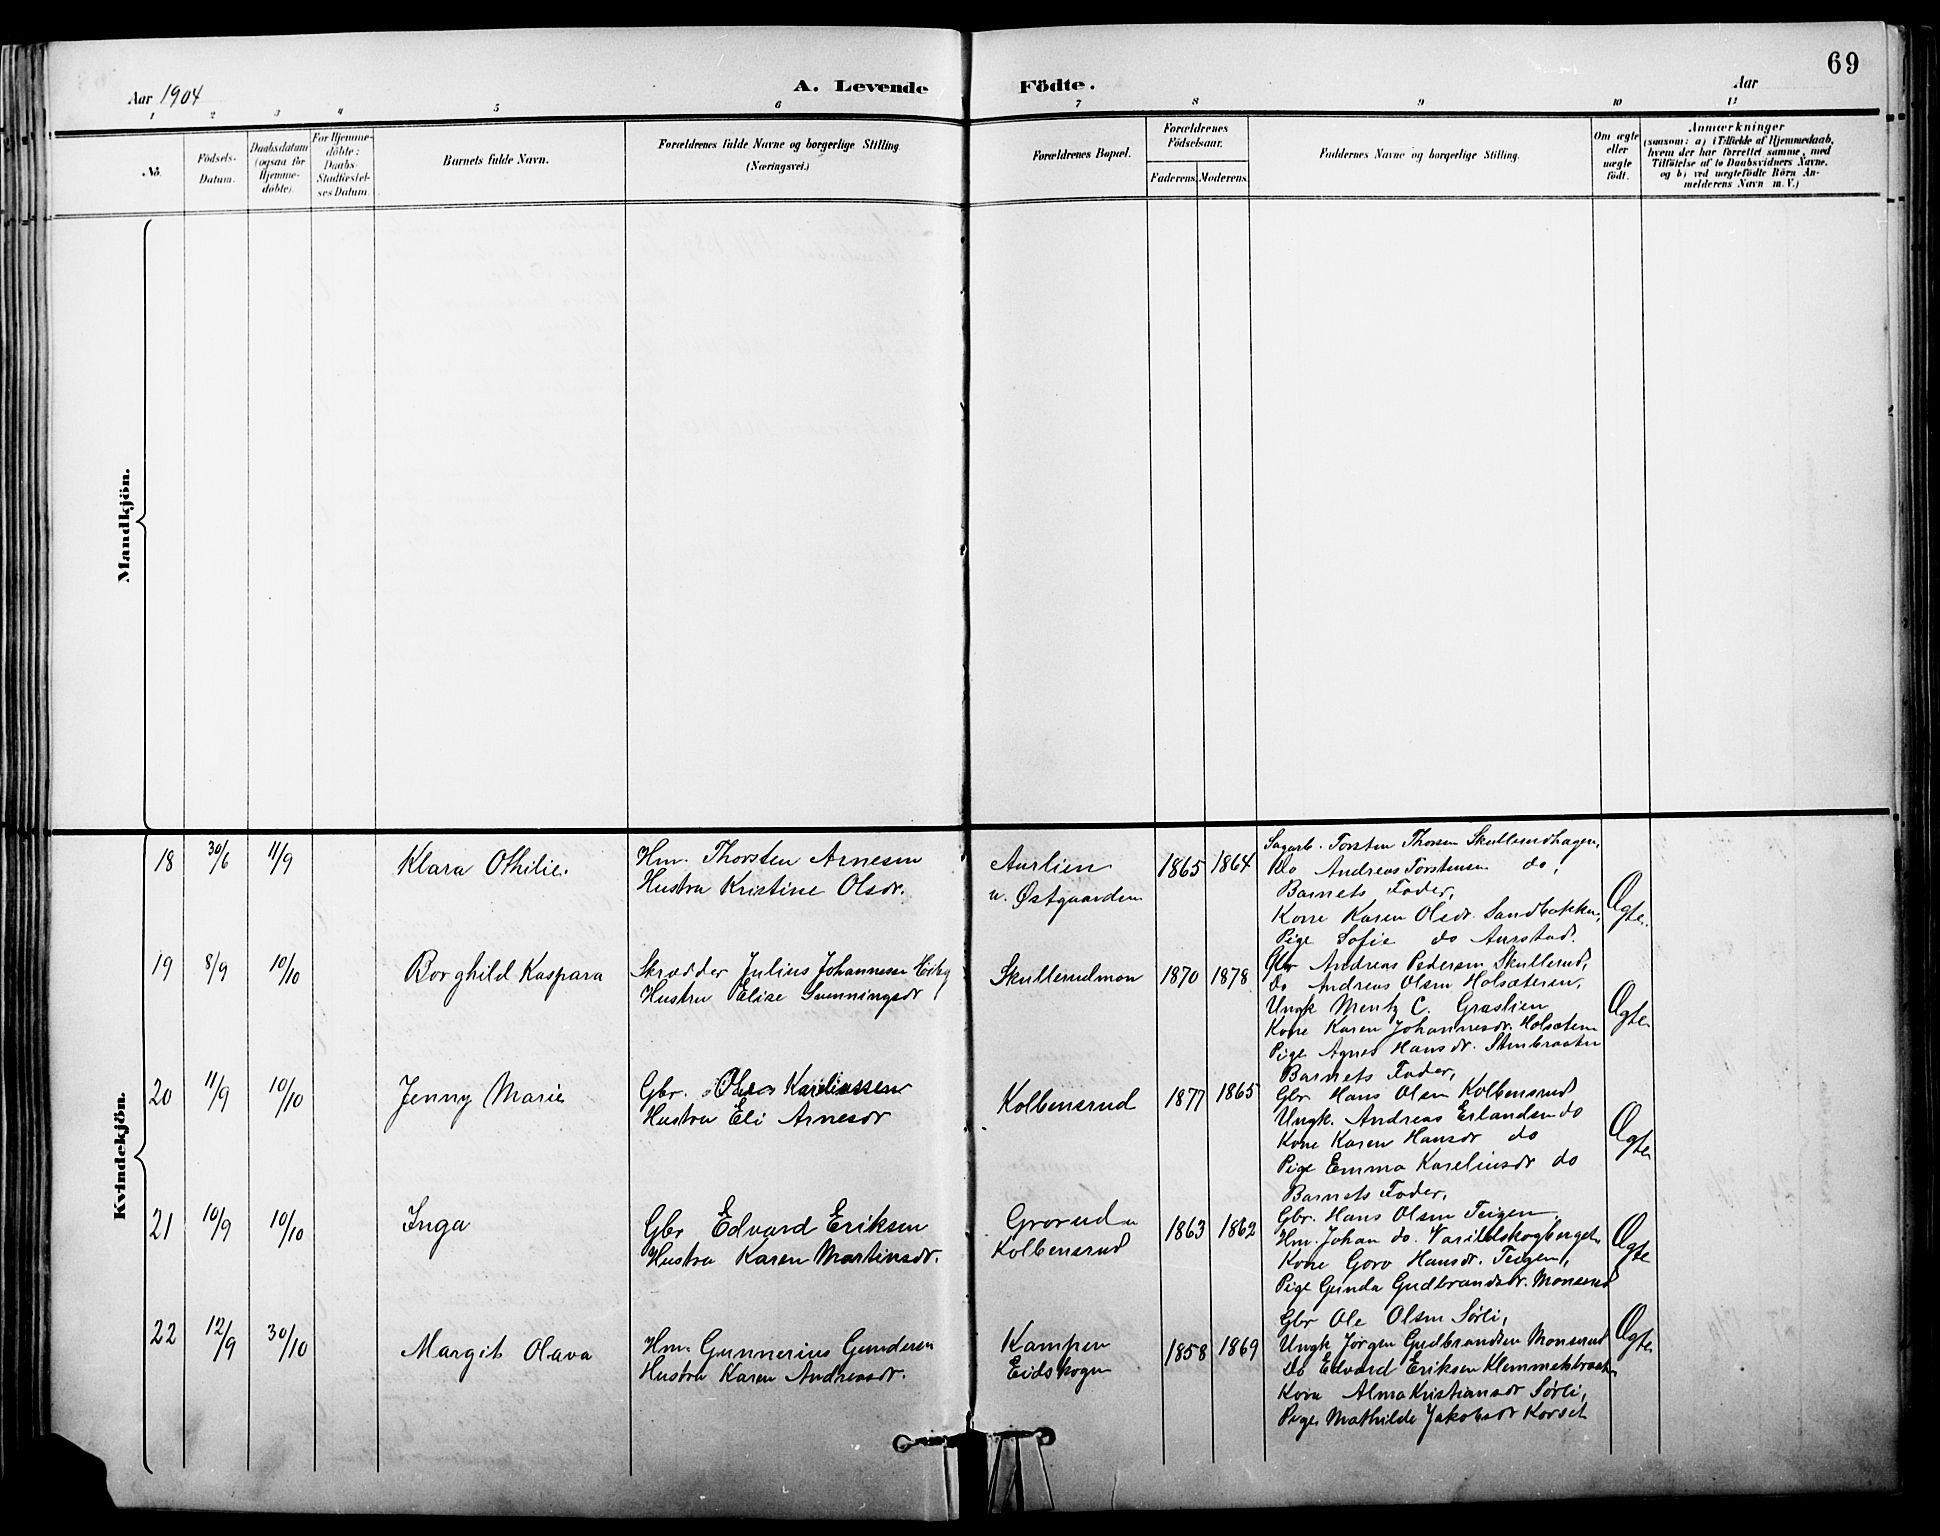 69
Aar 1904
A. Levende Födte.
Aar
1 2 3 4 5 6 7 8 9 10 11
No.
Födsels-
Datum.
Daabsdatum
(ogsaa for
Hjemme-
döbte).
For Hjemme-
döbte:
Daabs-
Stadfæstel-
ses Datum
Barnets fulde Navn.
Forældrenes fulde Navne og borgerlige Stilling
(Næringsvei.)
Forældrenes Bopæl.
Forældrenes
Födselsaar.
Faderens. Moderens.
Faddernes Navne og borgerlige Stilling.
Om ægte
eller
uægte
födt.
Anmærkninger
(saasom: a) i Tilfælde af Hjemmedaab,
hvem der har forrettet samme, med
Tilföielse af to Daabsvidners Navne.
og b) ved uægtefödte Börn An-
melderens Navn m. V.)
Mandkjön.
Kvindekjön.
18 30/6 11/9 Klara Othilie.
Hm. Thorsten Arnesen
Hustru Kristine Olsdr.
Aurlien
u. Østgaarden
1865 1864
Sagarb. Torsten Thorsen Skullerudhagen,
Do Andreas Torstensen do,
Barnets Fader,
Kone Karen Olsdr. Sandbakken,
Pige Sofie do Aurstad.
Ægte
19 8/9 10/10 Borghild Kaspara
Skrædder Julius Johannessen
Hustru Elise
Skullerudmon
1870 1878
Gbr Andreas Pedersen Skullerud,
Do Andreas Olsen Holsæteren,
Ungk Mentz C. Græslien
Kone Karen Johannesdr. Holsæteren
Pige Agnes Hansdr. Stenbraaten
Ægte
20 11/9 10/10 Jenny Marie
Gbr. Olaves Kareliussen
Hustru Eli Arnesdr
Kolbensrud
1877 1865
Barnets Fader,
Gbr Hans Olsen Kolbensrud
Ungk. Andreas Erlandsen do
Kone Karen Hansdr do
Pige Emma Kareliusdr do
Ægte
21 10/9 10/10 Inga
Gbr Edvard Eriksen
Hustru Karen Martinsdr.
Grorud u
Kolbensrud
1863 1862
Barnets Fader,
Gbr. Hans Olsen Teigen,
Hm. Johan do. Varildskogberget,
Kone Goro Hansdr. Teigen,
Pige Gunda Gudbrandsdr. Monsrud
Ægte
22 12/9 30/10 Margit Olava
Hm. Gunnerius Gundersen
Hustru Karen Andreasdr.
Kampen
Eidskogen
1858 1869
Gbr Ole Olsen Sørli,
Ungk Jørgen Gudbrandsen Monsrud
Do Edvard Eriksen Klemmetsbraaten
Kone Alma Kristiansdr Sørli,
Pige Mathilde Jakobsdr Korset
Ægte